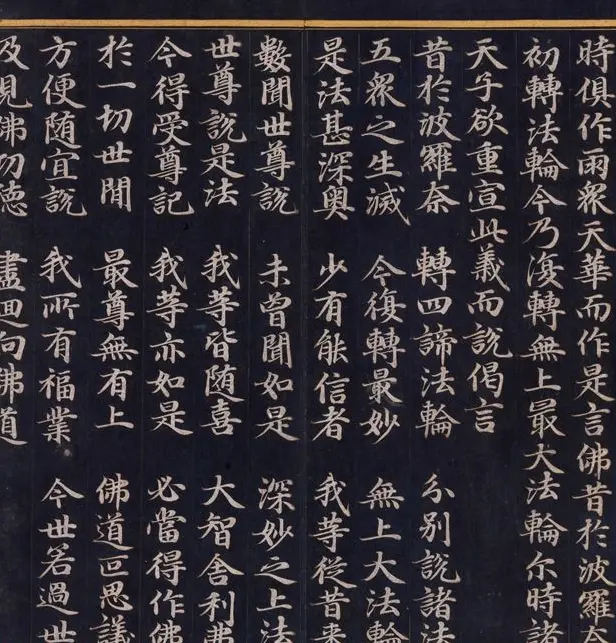 時俱作雨眾天華而作是言佛昔於波羅
初轉法輪今乃復轉無上最大法輪尔時諸
天子欲重宣此義而說偈言
昔於波羅奈 轉四諦法輪 分別說諸法
五眾之生滅 今復轉最妙 無上大法輪
是法甚深奧 少有能信者 我等從昔來
數聞世尊說 未曾聞如是 深妙之上法
世尊說是法 我等皆随喜 大智舍利弗
今得受尊記 我等亦如是 必當得作佛
於一切世間 最尊無有上 佛道叵思議
方便随宜說 我所有福業 今世若過世
及見佛功德 盡迴向佛道